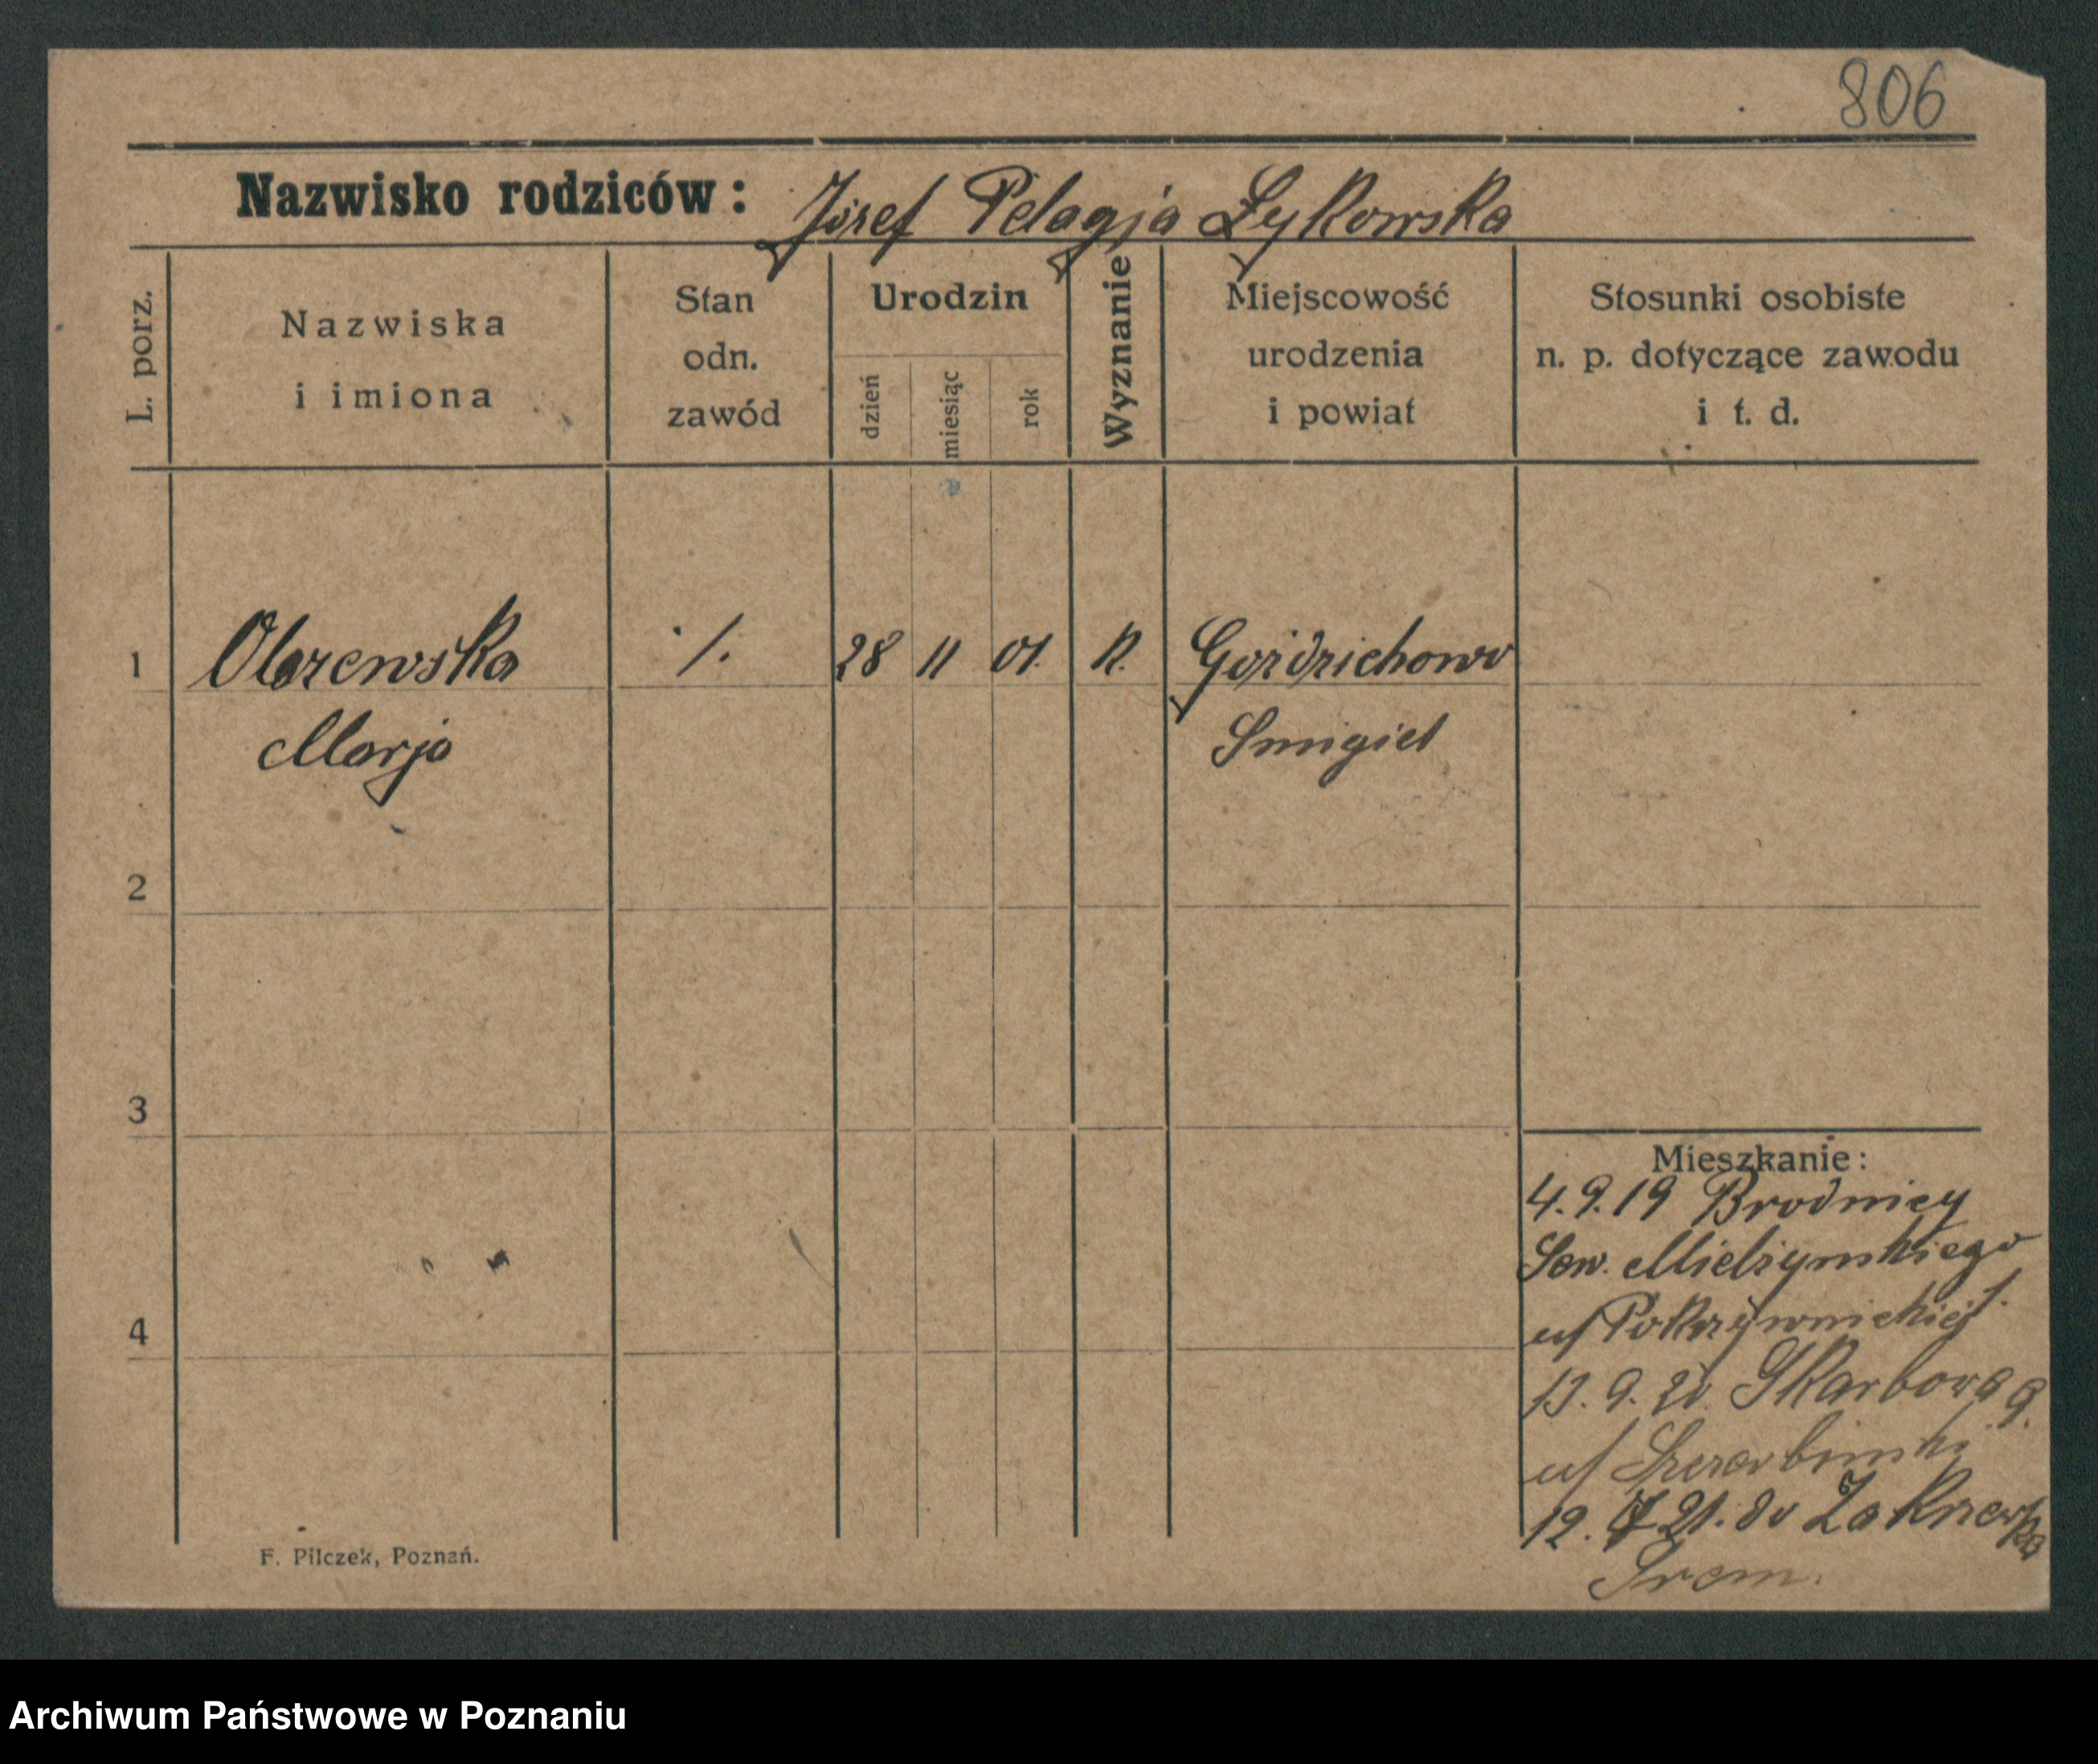 806
Nazwisko rodziców: Józef Pelagja Łykowska
L. porz.
Nazwiska
i imiona
Stan
odn.
zawód
Urodzin
dzień
miesiąc
rok
Wyznanie
Miejscowość
urodzenia
i powiat
Stosunki osobiste
n. p. dotyczące zawodu
i t. d.
1 ·/. 28 11 01. K. Goździchowo
Marja Smigiel
2
3
4
Mieszkanie:
4.9.19 Brodnicy
Sew. Mielżynskiego
u/ Pokrzywnickiej
13. 9. 20. Skarbowa 9.
u/
12. 21. do
Srem.
F. Pilczek, Poznań.
Archiwum Państwowe w Poznaniu